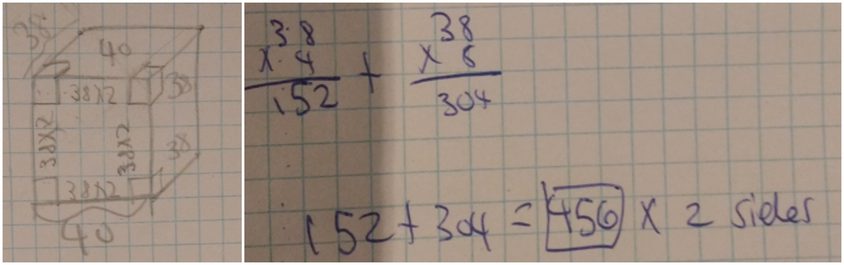 38
40
38x2 38
38x2 38x2 38
38x2
40
38 38
x 4 + x 8
152 304
152 + 304 = 456 x 2 sides